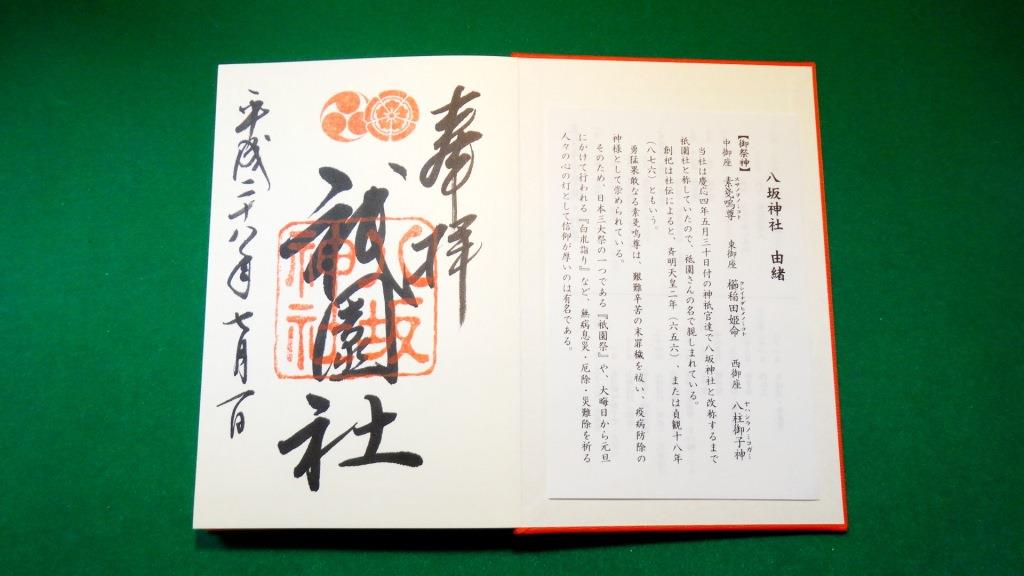 奉拝
祇園社
八坂神社
平成二十八年七月一日
八坂神社　由緒
【御祭神】
中御座　素戔嗚尊　東御座　櫛稲田姫命　西御座　八柱御子神
スサノヲノミコト　クシイナダヒメノミコト　ヤハシラノミコガミ
当社は慶応四年五月三十日付の神祇官達で八坂神社と改称するまで
祇園社と称していたので、祇園さんの名で親しまれている。
創祀は社伝によると、斉明天皇二年（六五六）、または貞観十八年
（八七六）ともいう。
勇猛果敢なる素戔嗚尊は、艱難辛苦の末罪穢を祓い、疫病防除の
神様として崇められている。
そのため、日本三大祭の一つである『祇園祭』や、大晦日から元旦
にかけて行われる『白朮詣り』など、無病息災・厄除・災難除を祈る
人々の心の灯として信仰が厚いのは有名である。